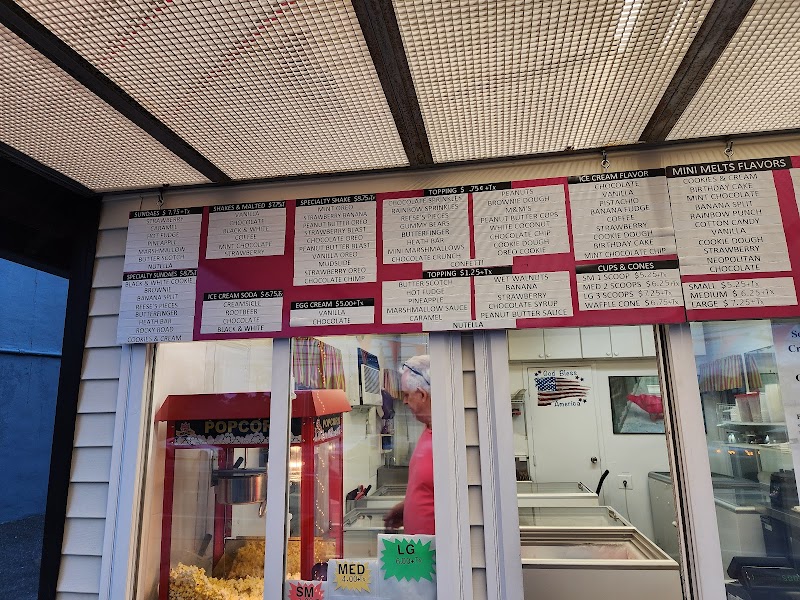 SUNDAES $ 7.75+Tx
STRAWBERRY
CARAMEL
HOT FUDGE
PINEAPPLE
MARSHMALLOW
BUTTER SCOTCH
NUTELLA
SPECIALTY SUNDAES $8.75+Tx
BLACK & WHITE COOKIE
BROWNIE
BANANA SPLIT
REESE'S PIECES
BUTTERFINGER
HEATH BAR
ROCKY ROAD
COOKIES & CREAM
SHAKES & MALTED $7.75+Tx
VANILLA
CHOCOLATE
BLACK & WHITE
COFFEE
MINT CHOCOLATE
STRAWBERRY
ICE CREAM SODA $ 6.75+Tx
CREAMSICLE
ROOTBEER
CHOCOLATE
BLACK & WHITE
SPECIALTY SHAKE $8.75+Tx
MINT OREO
STRAWBERRY BANANA
PEANUT BUTTER OREO
STRAWBERRY BLAST
CHOCOLATE OREO
PEANUT BUTTER BLAST
VANILLA OREO
MUDSLIDE
STRAWBERRY OREO
CHOCOLATE CHIP
EGG CREAM $5.00+Tx
VANILLA
CHOCOLATE
TOPPING $ .75¢+Tx
CHOCOLATE SPRINKLES
RAINBOW SPRINKLES
REESE'S PIECES
GUMMY BEARS
BUTTERFINGER
HEATH BAR
MINI MARSHMALLOWS
CHOCOLATE CRUNCH
CONFETTI
PEANUTS
BROWNIE DOUGH
M&M'S
PEANUT BUTTER CUPS
WHITE COCONUT
CHOCOLATE CHIP
COOKIE DOUGH
OREO
TOPPING $1.25+Tx
BUTTER SCOTCH
HOT FUDGE
PINEAPPLE
MARSHMALLOW SAUCE
CARAMEL
NUTELLA
WET WALNUTS
BANANA
STRAWBERRY
CHOCOLATE SYRUP
PEANUT BUTTER SAUCE
ICE CREAM FLAVOR
CHOCOLATE
VANILLA
PISTACHIO
BANANA FUDGE
COFFEE
STRAWBERRY
COOKIE DOUGH
BIRTHDAY CAKE
MINT CHOCOLATE CHIP
CUPS & CONES
SM 1 SCOOP $5.25+Tx
MED 2 SCOOPS $6.25+Tx
LG 3 SCOOPS $7.25+Tx
WAFFLE CONE $6.75+Tx
MINI MELTS FLAVORS
COOKIES & CREAM
BIRTHDAY CAKE
MINT CHOCOLATE
BANANA SPLIT
RAINBOW PUNCH
COTTON CANDY
VANILLA
COOKIE DOUGH
STRAWBERRY
NEOPOLITAN
CHOCOLATE
SMALL $5.25+Tx
MEDIUM $ 6.25+Tx
LARGE $ 7.25+Tx
POPCORN
God Bless
America
SM
MED
LG